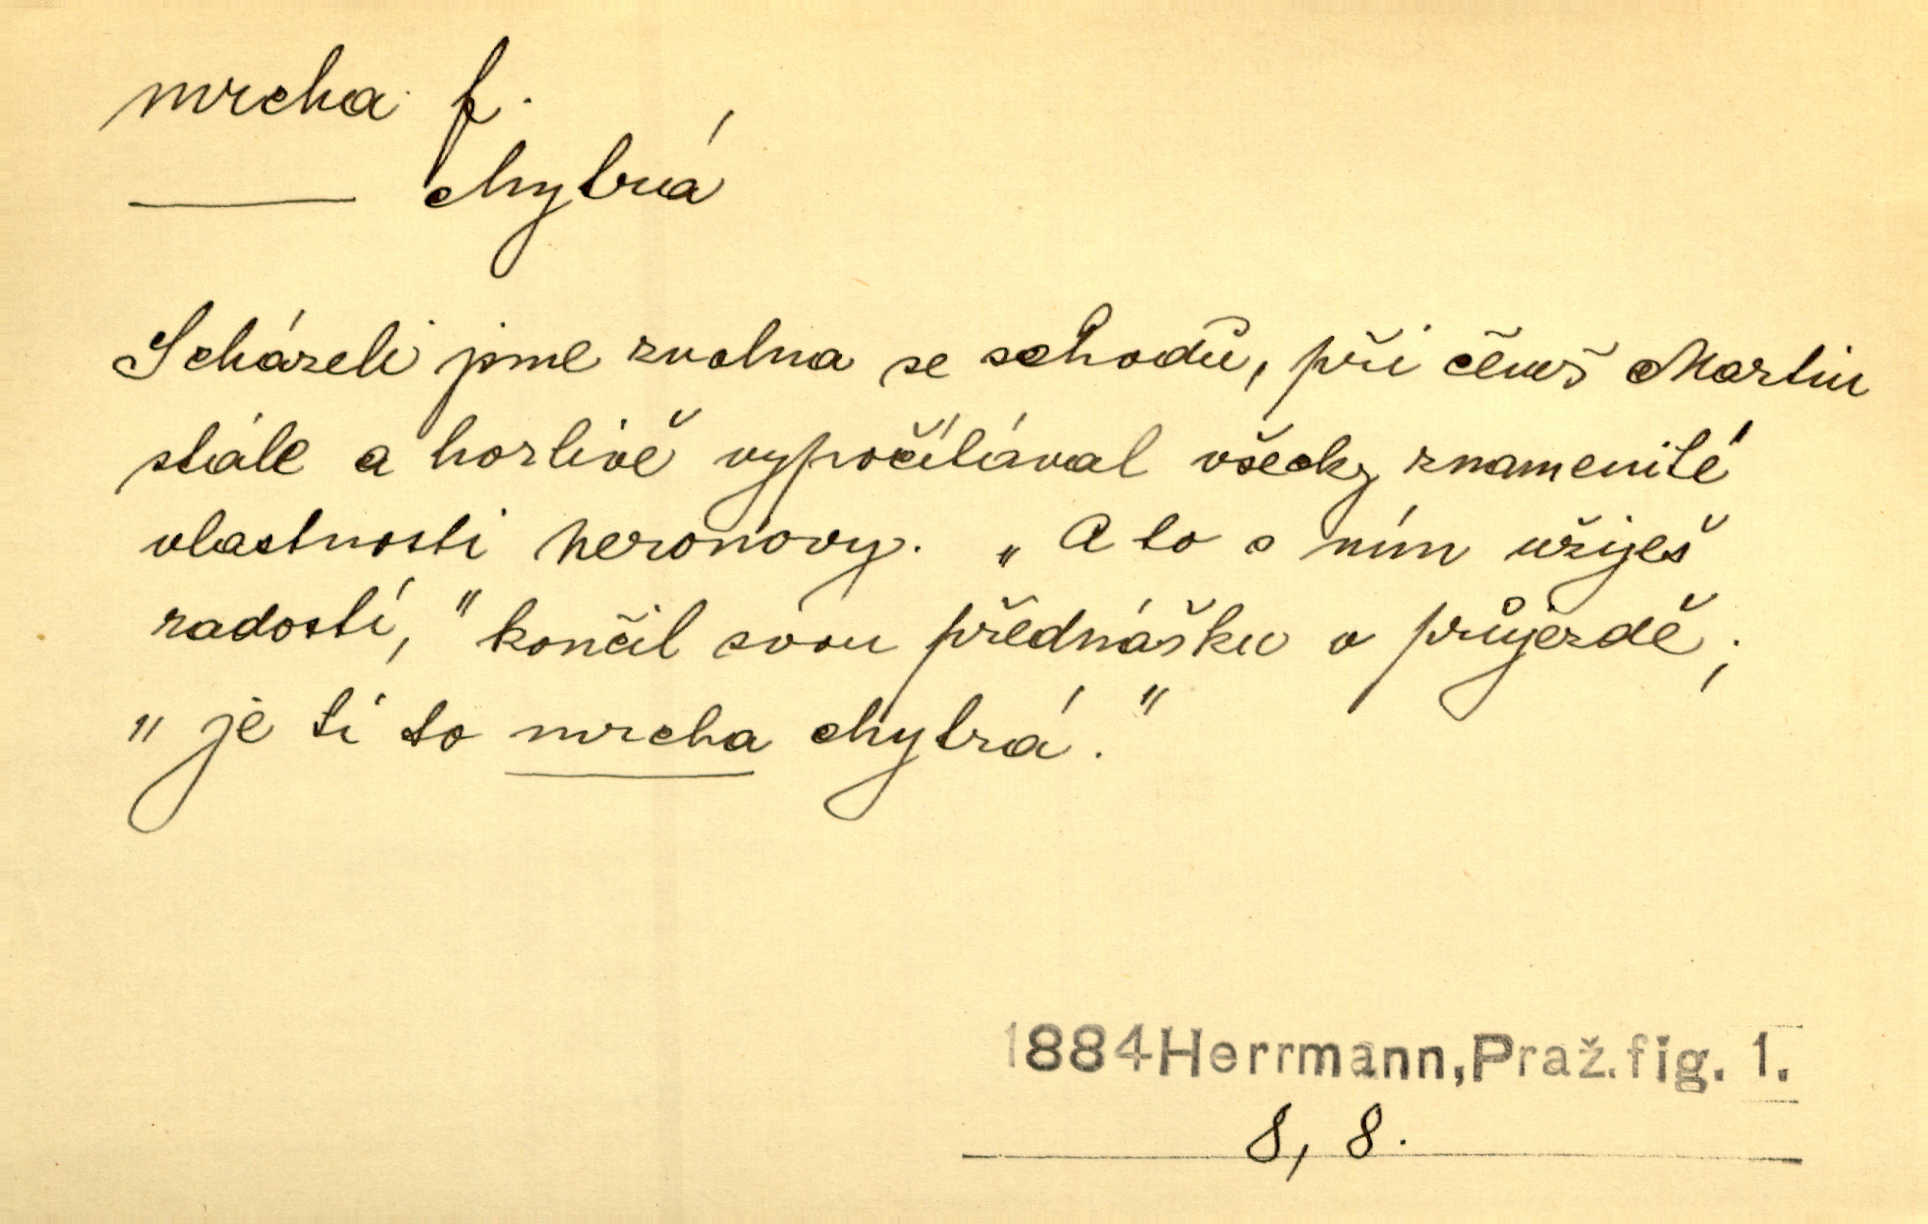 mrcha f.
——— chytrá
Scházeli jsme zvolna se schodů, při čemž Martin
stále a horlivě vypočítával všecky znamenité
vlastnosti neronovy. „A to s ním užiješ
radostí," končil svou přednášku v průjezdě;
„je ti to mrcha chytrá."
1884 Herrmann, Praž. fig. 1.
8, 8.